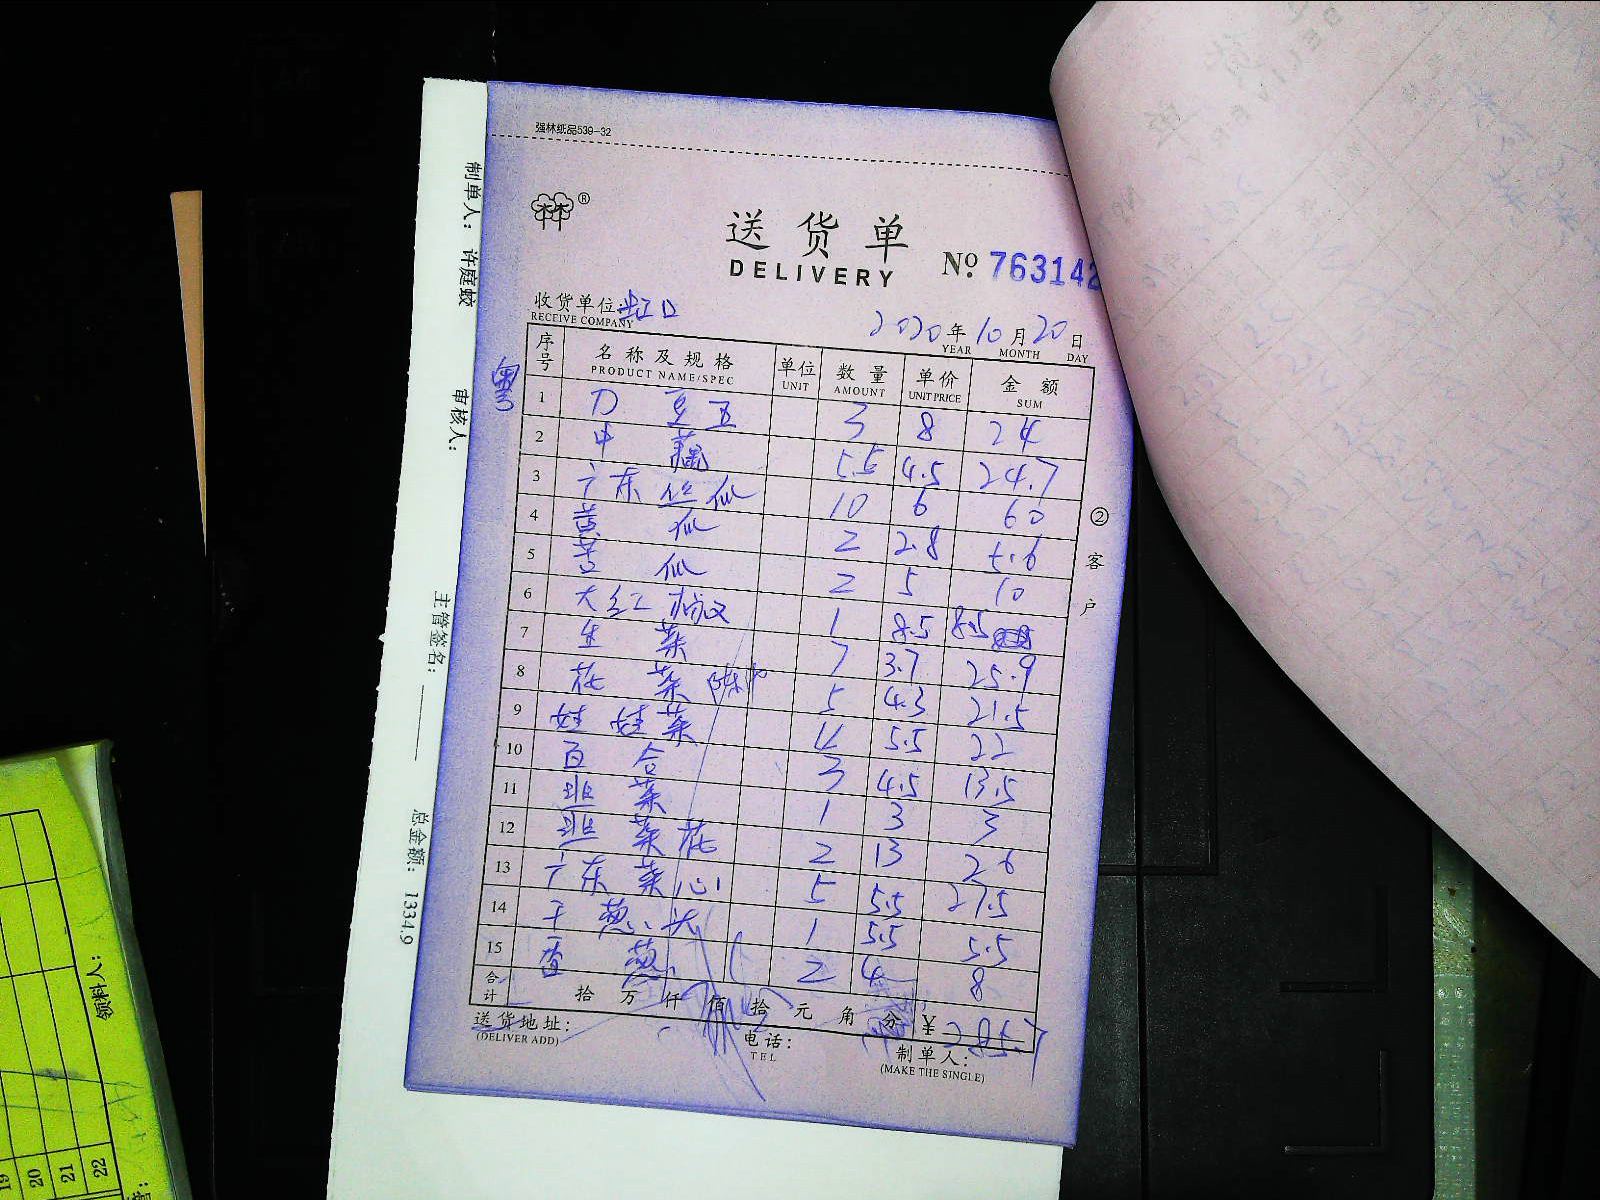 强林纸品539-32
林®
送货单
DELIVERY
No. 763142
收货单位 虹口
RECEIVE COMPANY
2020年10月20日
YEAR MONTH DAY
粤
序号 名称及规格 单位 数量 单价 金额
PRODUCT NAME/SPEC UNIT AMOUNT UNIT PRICE SUM
1 刀豆五 3 8 24
2 中藕 5.5 4.5 24.7
3 广东丝瓜 10 6 60
4 黄瓜 2 2.8 5.6
5 苦瓜 2 5 10
6 大红椒 1 8.5 8.5
7 生菜 7 3.7 25.9
8 花菜 5 4.3 21.5
9 娃娃菜 4 5.5 22
10 百合 3 4.5 13.5
11 韭菜 1 3 3
12 韭菜花 2 13 26
13 广东菜心 5 5.5 27.5
14 干葱头 1 5.5 5.5
15 香葱 2 4 8
合计 拾万仟佰拾元角分 ¥285.7
送货地址:
(DELIVER ADD)
电话:
TEL
制单人:
(MAKE THE SINGLE)
②客户
制单人: 许庭蛟
审核人:
主管签名:
总金额: 1334.9
领料人:
19
20
21
22